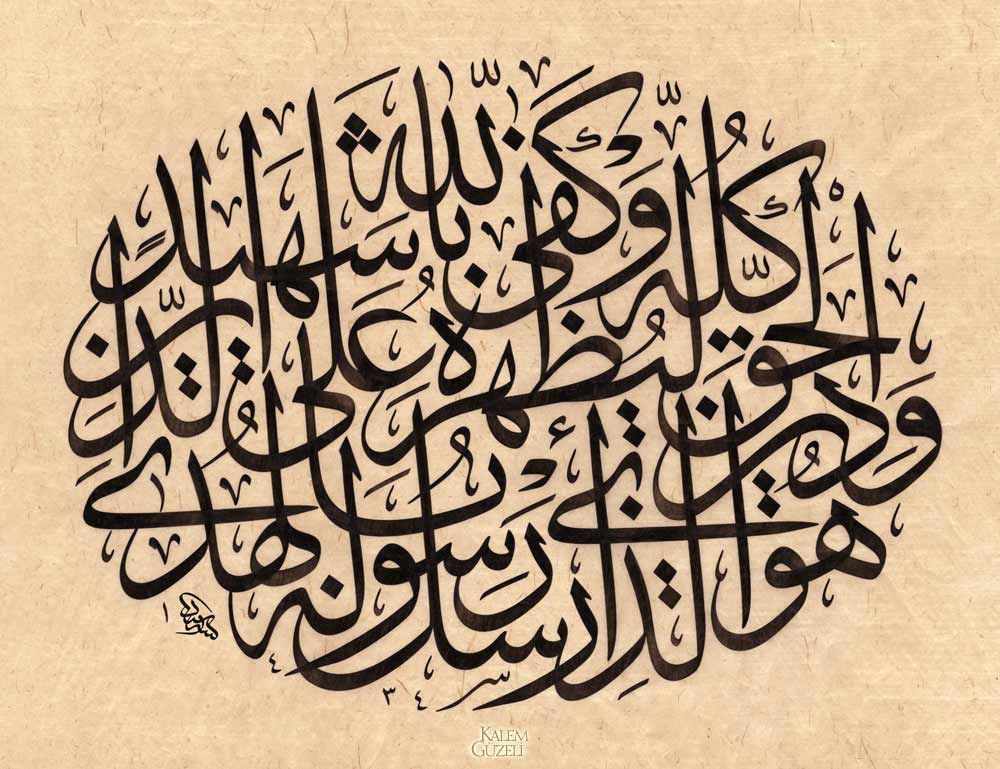 هو الذي أرسل رسوله بالهدى
ودين الحق ليظهره على الدين
كله وكفى بالله شهيدا
١٤٣٤
KALEM
GÜZELİ